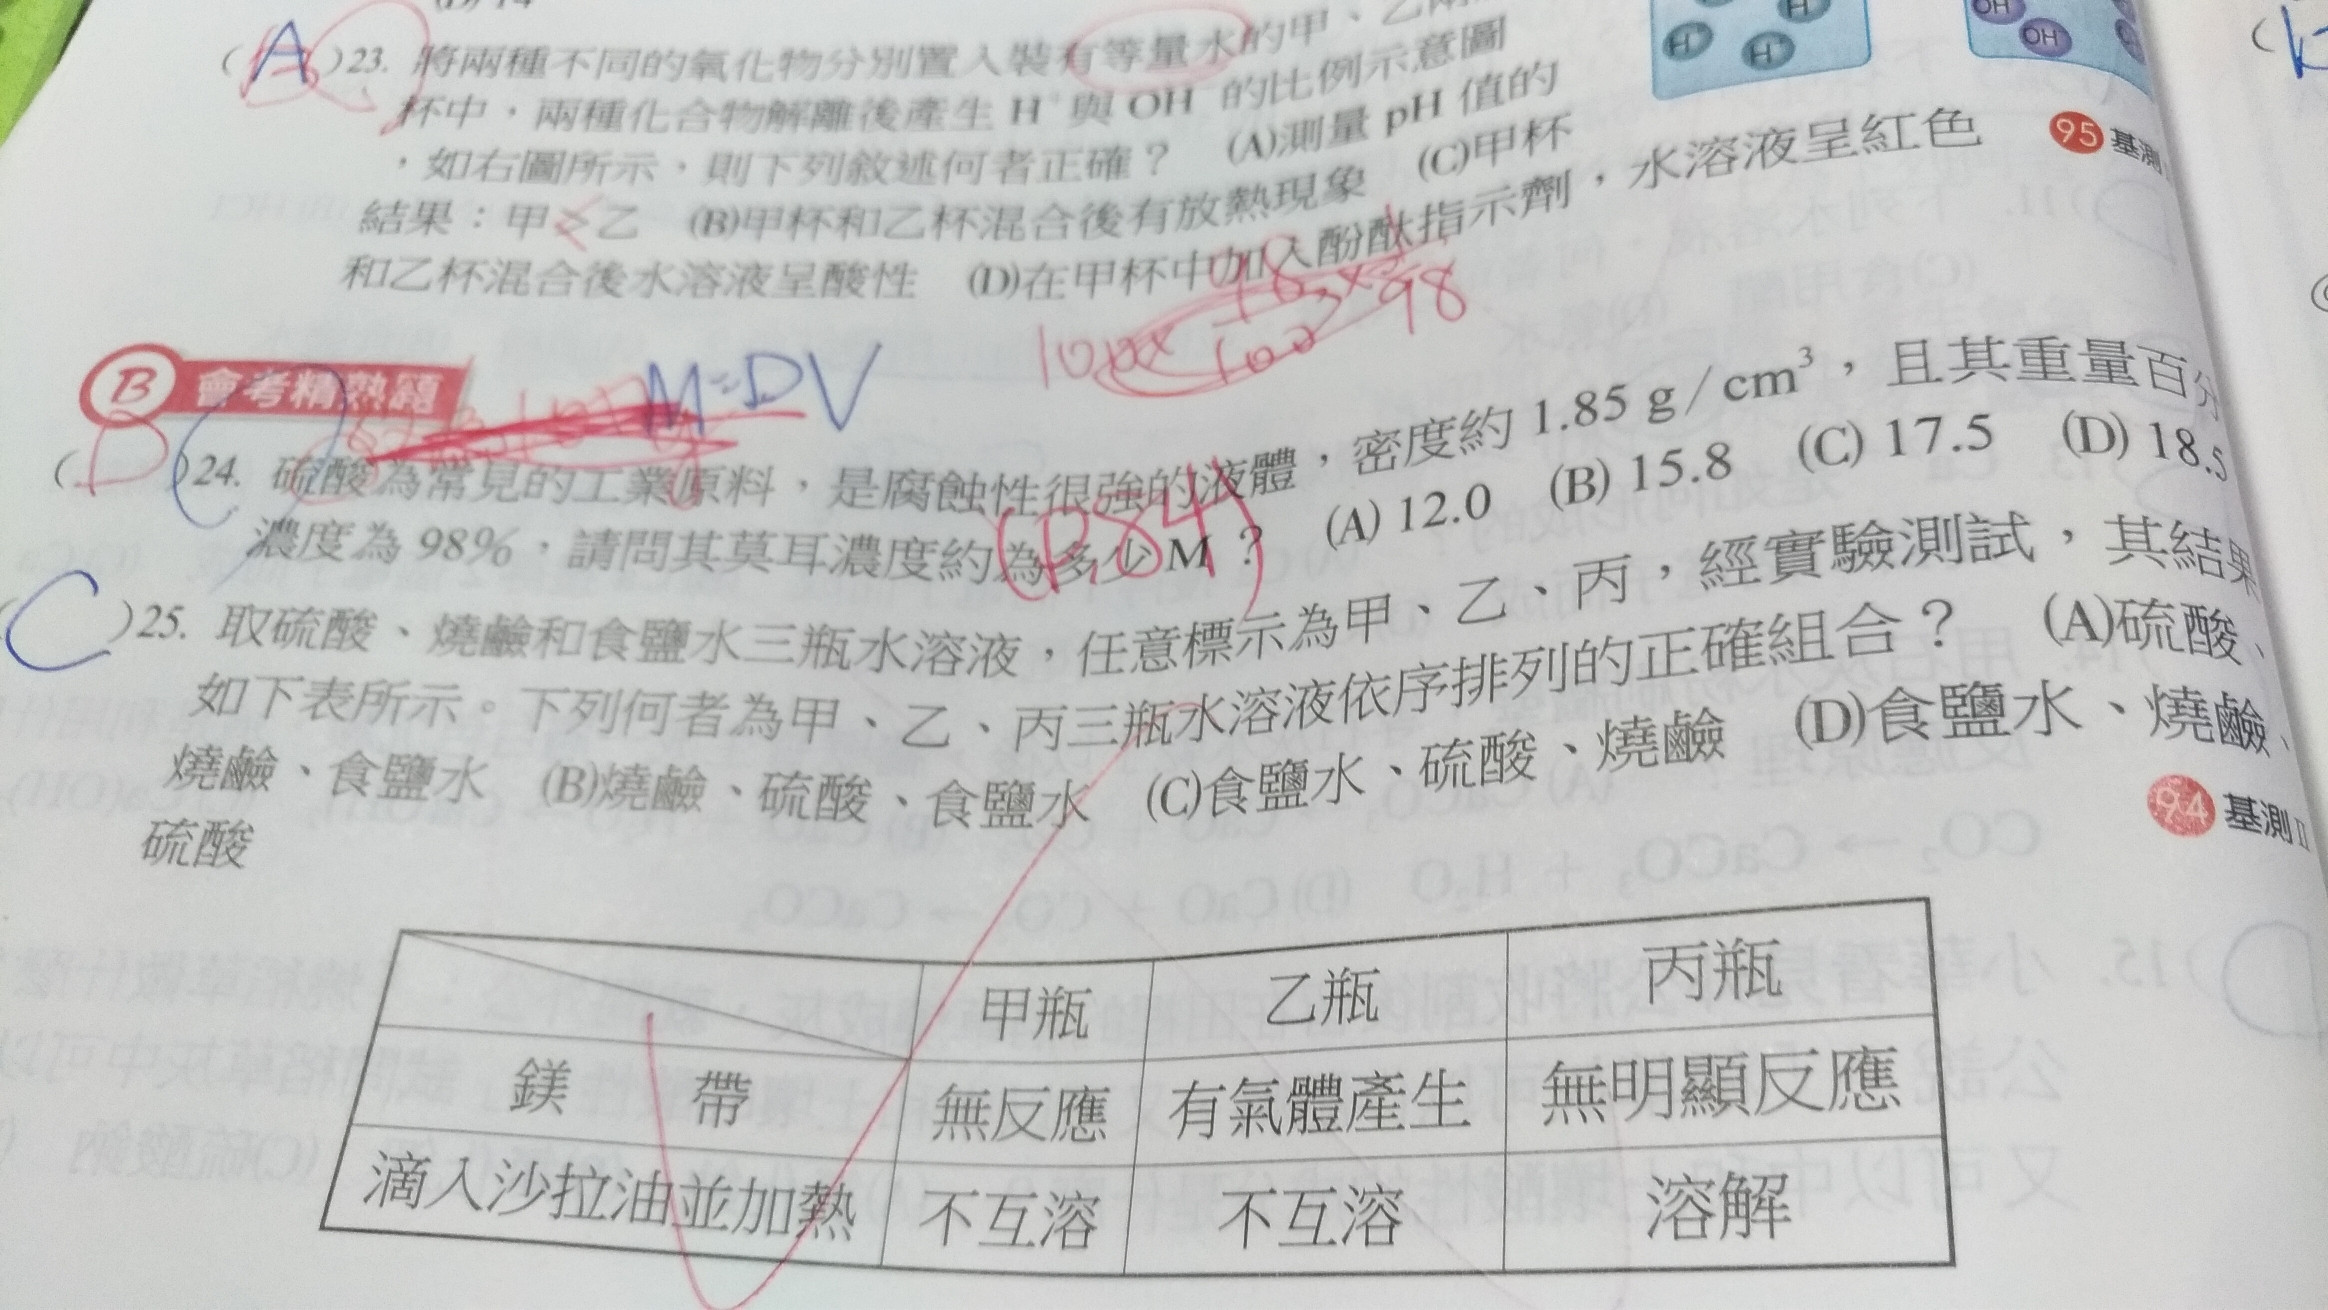 (A)23. 將兩種不同的氧化物分別置入裝有等量水的甲、乙兩
杯中，兩種化合物解離後產生 H⁺ 與 OH⁻ 的比例示意圖
，如右圖所示，則下列敘述何者正確？ (A)測量 pH 值的
結果：甲＞乙 (B)甲杯和乙杯混合後有放熱現象 (C)甲杯
和乙杯混合後水溶液呈酸性 (D)在甲杯中加入酚酞指示劑，水溶液呈紅色
95 基測
H⁺ H⁺ H⁺
OH⁻ OH⁻
98
100
B 會考精熟題
M=DV
(D)24. 硫酸為常見的工業原料，是腐蝕性很強的液體，密度約 1.85 g/cm³，且其重量百分
濃度為 98%，請問其莫耳濃度約為多少 M？ (A) 12.0 (B) 15.8 (C) 17.5 (D) 18.5
(P.84)
(C)25. 取硫酸、燒鹼和食鹽水三瓶水溶液，任意標示為甲、乙、丙，經實驗測試，其結果
如下表所示。下列何者為甲、乙、丙三瓶水溶液依序排列的正確組合？ (A)硫酸、
燒鹼、食鹽水 (B)燒鹼、硫酸、食鹽水 (C)食鹽水、硫酸、燒鹼 (D)食鹽水、燒鹼、
硫酸
94 基測 II
甲瓶 乙瓶 丙瓶
鎂帶 無反應 有氣體產生 無明顯反應
滴入沙拉油並加熱 不互溶 不互溶 溶解